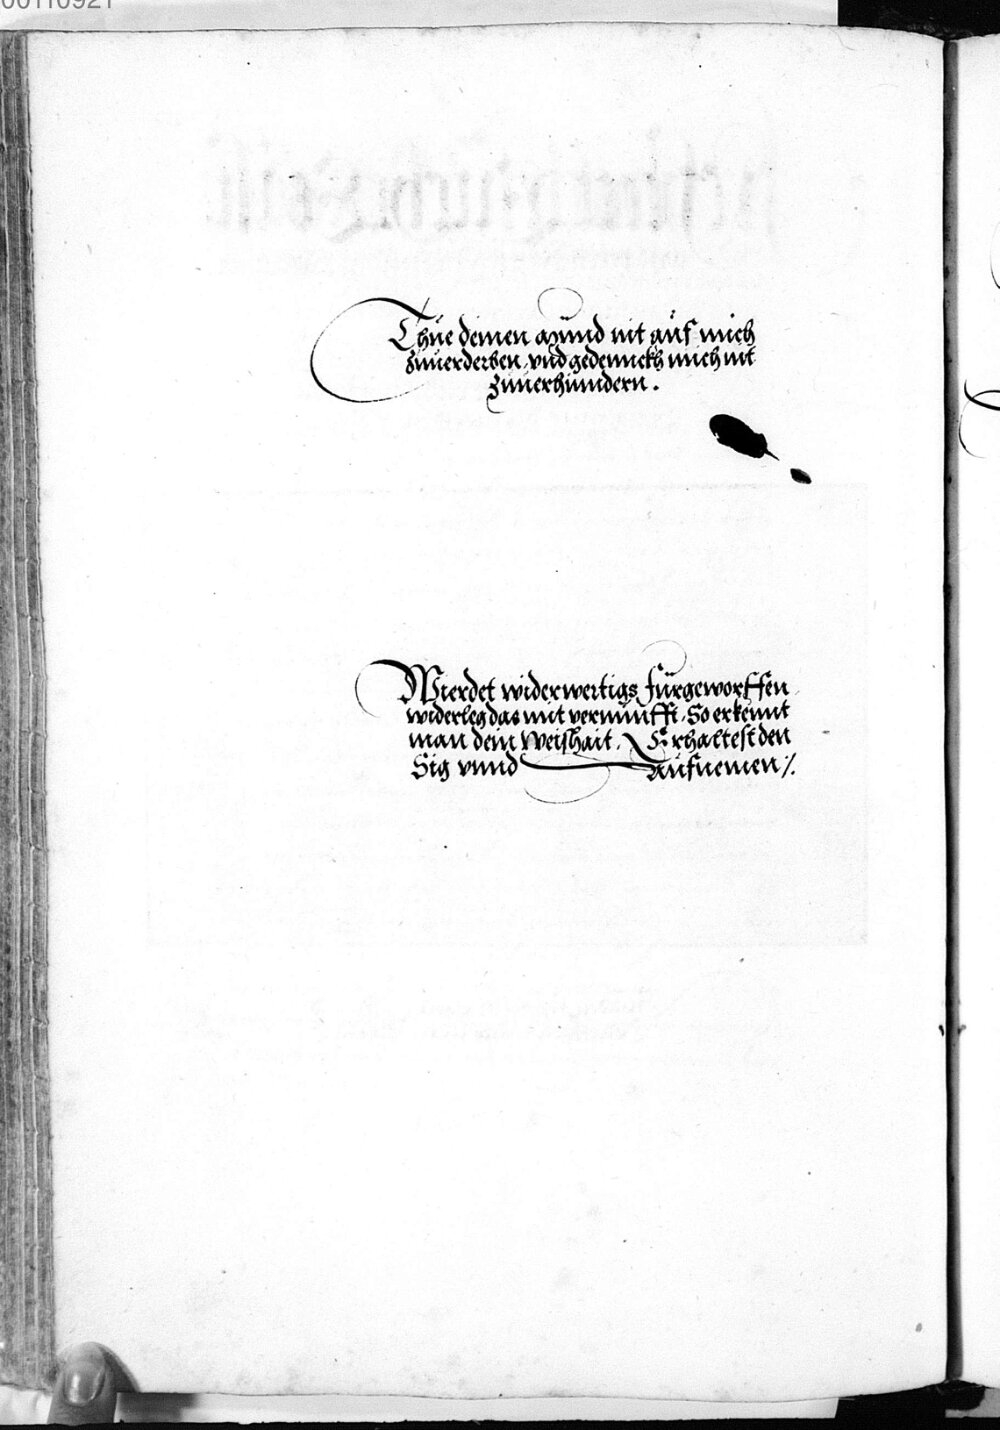 00110921
Thue deinen mund nit auf mich
zuuerderben, vnd gedennckh mich nit
zuuerhindern.
Wierdet widerwertigs fürgeworffen
widerleg das mit vernunfft, So erkennt
man dein Weishait, Erhaltest den
Sig vnnd Aufnemen /.